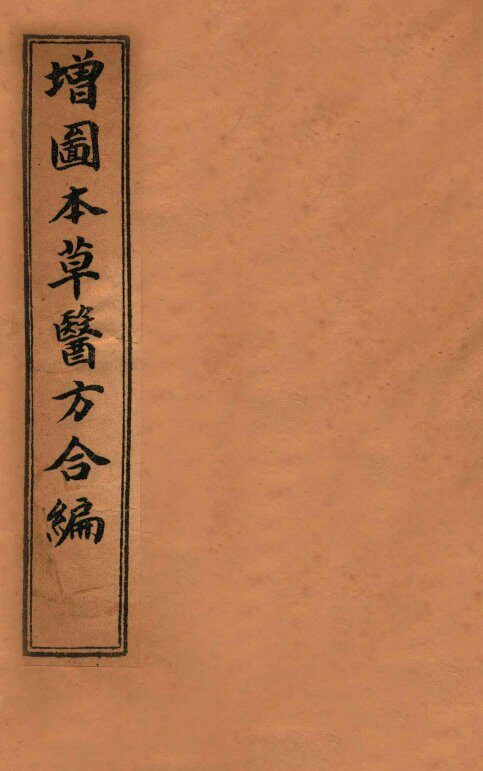 增圖本草醫方合編